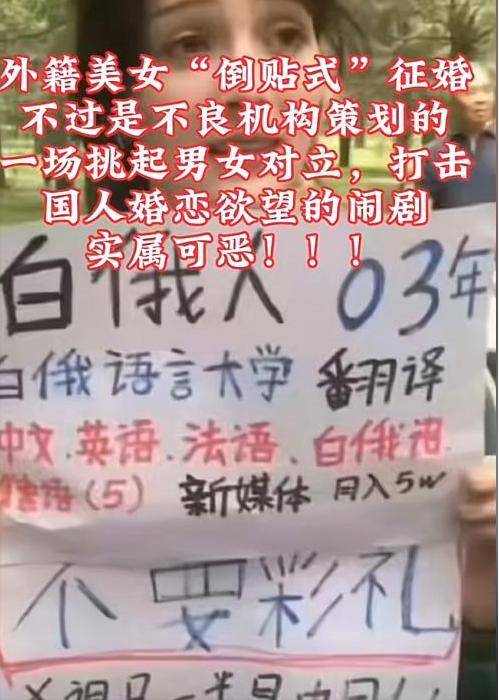 外籍美女“倒贴式”征婚
不过是不良机构策划的
一场挑起男女对立，打击
国人婚恋欲望的闹剧
实属可恶！！！
白俄人 03年
白俄语言大学 翻译
中文.英语.法语.白俄语.
语(5) 新媒体 月入5w
不要彩礼